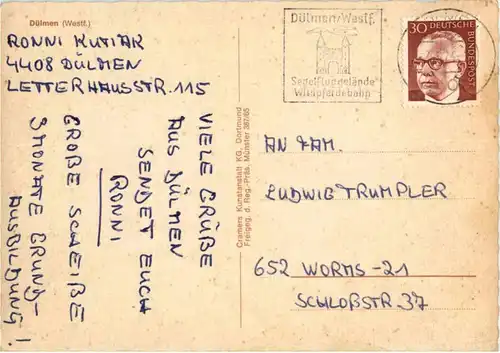 Dülmen (Westf.)
RONNI KUTIAK
4408 DÜLMEN
LETTERHAUSSTR. 115
VIELE GRÜßE
AUS DÜLMEN
SENDET EUCH
RONNI
GROßE SCHEIßE
3MONATE GRUND-
AUSBILDUNG!
Gramers Kunstanstalt KG, Dortmund
Freigeg. d. Reg.-Präs. Münster 367/65
Dülmen/Westf.
Segelfluggelände
Wildpferdebahn
30 DEUTSCHE BUNDESPOST
AN FAM.
LUDWIG TRUMPLER
652 WORMS-21
SCHLOßSTR 37